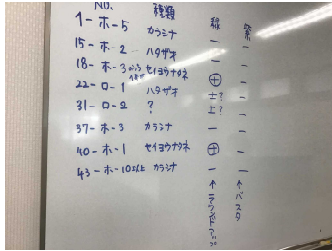 No. 種類 緑 紫
1-ホ-5 カラシナ - -
15-ホ-2 ハタザオ - -
18-ホ-3 セイヨウナタネ ⊕ -
22-ロ-1 ハタザオ ±? -
31-ロ-2 ? ±? -
37-ホ-3 カラシナ - -
40-ホ-1 セイヨウナタネ ⊕ -
43-ホ-10以上 カラシナ - -
↑ラウンドアップ ↑バスタ